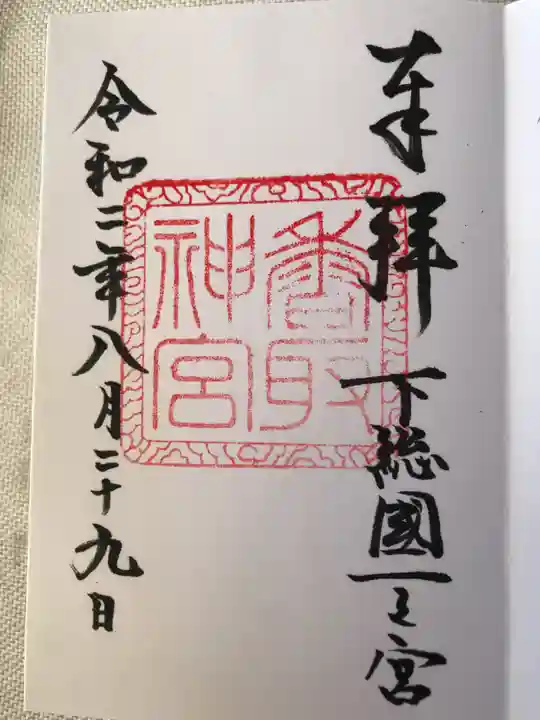 奉拝 下総國一之宮
香取
神宮
令和三年八月二十九日